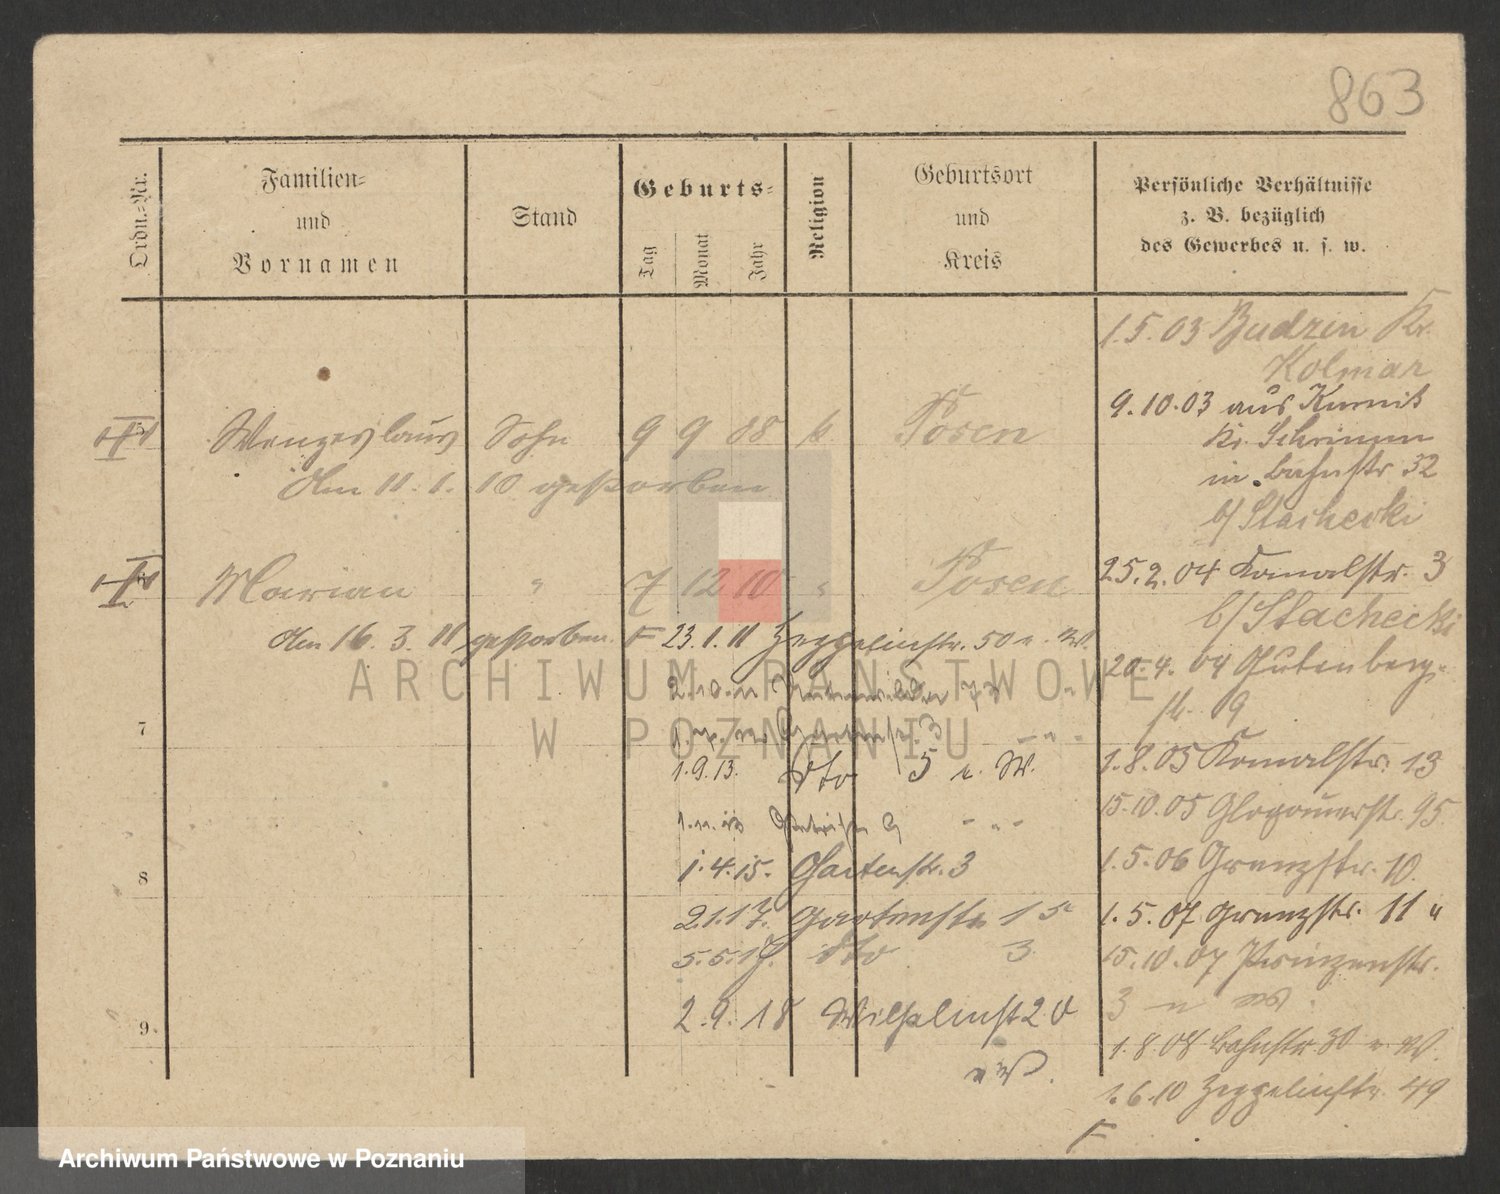 863
Ordn.-Nr.
Familien-
und
Vornamen
Stand
Geburts-
Tag
Monat
Jahr
Religion
Geburtsort
und
Kreis
Persönliche Verhältnisse
z. B. bezüglich
des Gewerbes u. s. w.
1.5.03 Budzin Kr.
Kolmar
9.10.03 aus Kurnik
Kr. Schrimm
in Bahnstr 32
b/ Stachecki
Wenzeslaus Sohn 9 9 08 k. Posen
Am 11.1.10 gestorben
25.2.04 Kanalstr. 3
b/ Stachecki
Marian " 7 12 10 " Posen
Am 16.3.11 gestorben. F 23.1.11 Zeppelinstr. 50 u. W.
20.4.04 Gutenberg-
str. 9
2.10.11
7
1.9.13. dto 5 u. W.
1.8.05 Kanalstr. 13
15.10.05 Glogauerstr. 95
8
1.4.15. Gartenstr. 3
1.5.06 Grenzstr. 10.
2.1.17. Gartenstr 15
1.5.07 Grenzstr. 11 "
5.5.17. dto 3
15.10.07 Prinzenstr.
3
9.
2.9.18 Wilhelmst 20
1.8.08 Bahnstr 30 u. W.
1.6.10 Zeppelinstr. 49
F
ARCHIWUM PAŃSTWOWE
W POZNANIU
Archiwum Państwowe w Poznaniu